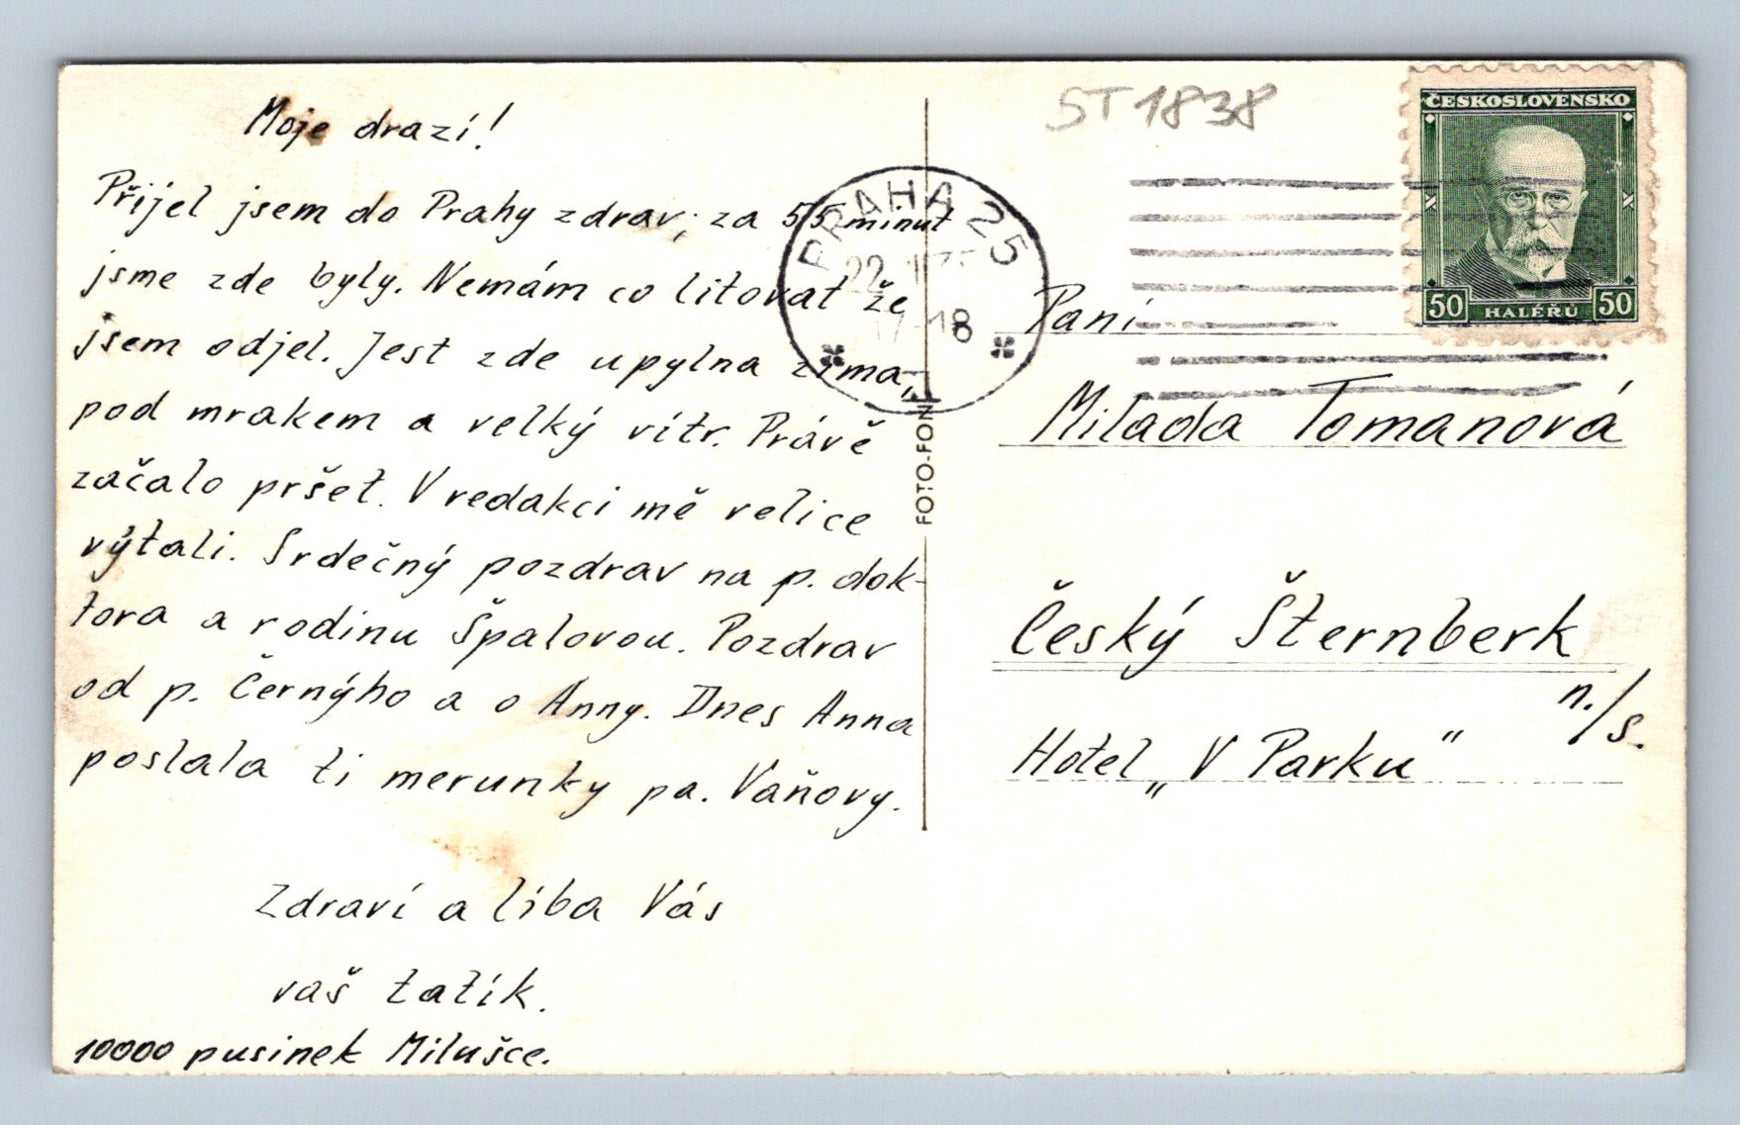 Moje drazí!
Přijel jsem do Prahy zdrav; za 55 minut
jsme zde byly. Nemám co litovat že
jsem odjel. Jest zde upylna zima,
pod mrakem a velký vítr. Právě
začalo pršet. V redakci mě velice
výtali. Srdečný pozdrav na p. dok-
tora a rodinu Špalovou. Pozdrav
od p. Černýho a o Anny. Dnes Anna
poslala ti merunky pa. Vaňovy.
Zdraví a líba Vás
vaš tatík.
10000 pusinek Milušce.
FOTO-FON
PRAHA 25
22
18
ST1838
ČESKOSLOVENSKO
50 HALÉŘŮ 50
Paní
Milada Tomanová
Český Šternberk
n./s.
Hotel „V Parku"